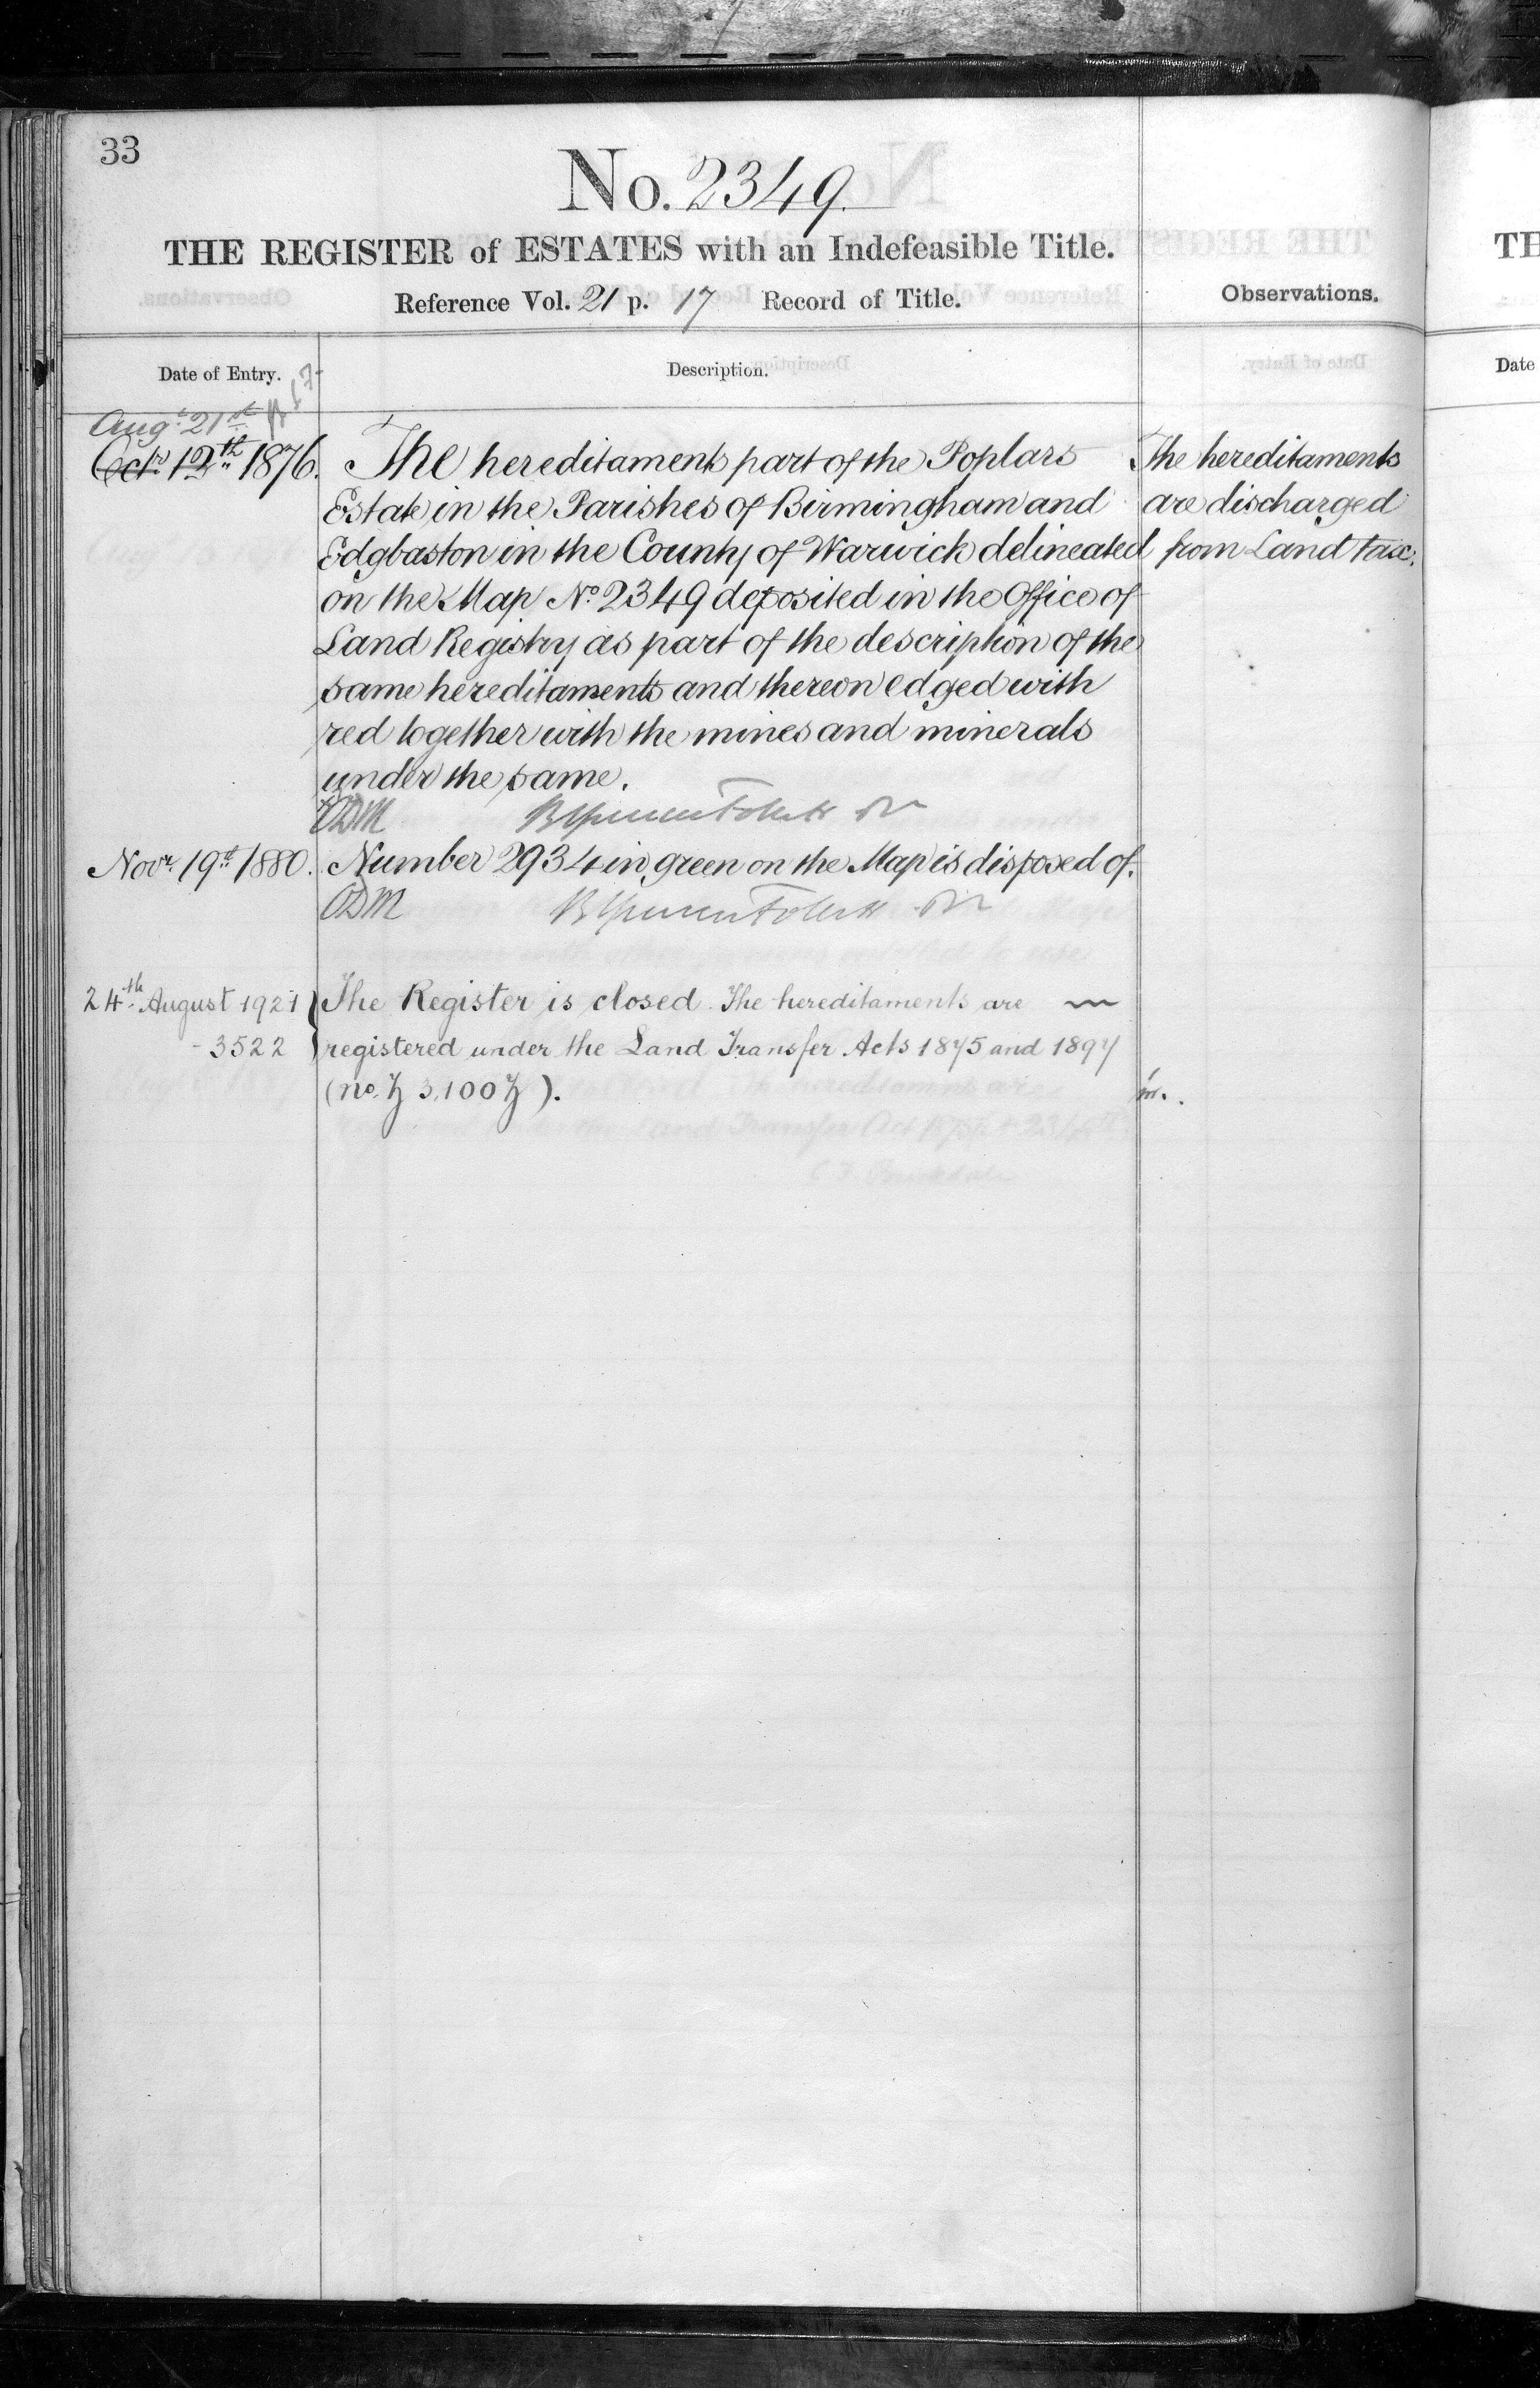 33
No. 2349.
THE REGISTER of ESTATES with an Indefeasible Title.
Reference Vol. 21 p. 17 Record of Title.
Observations.
Date of Entry.
Description.
Augt. 21st
Octr. 12th. 1876.
The hereditaments part of the Poplars
Estate in the Parishes of Birmingham and
Edgbaston in the County of Warwick delineated
on the Map No. 2349 deposited in the Office of
Land Registry as part of the description of the
same hereditaments and thereon edged with
red together with the mines and minerals
under the same.
The hereditaments
are discharged
from Land tax.
Novr. 19th. 1880.
Number 2934 in green on the Map is disposed of.
24th. August 1921
3522
The Register is closed. The hereditaments are
registered under the Land Transfer Acts 1875 and 1897
TH
Date